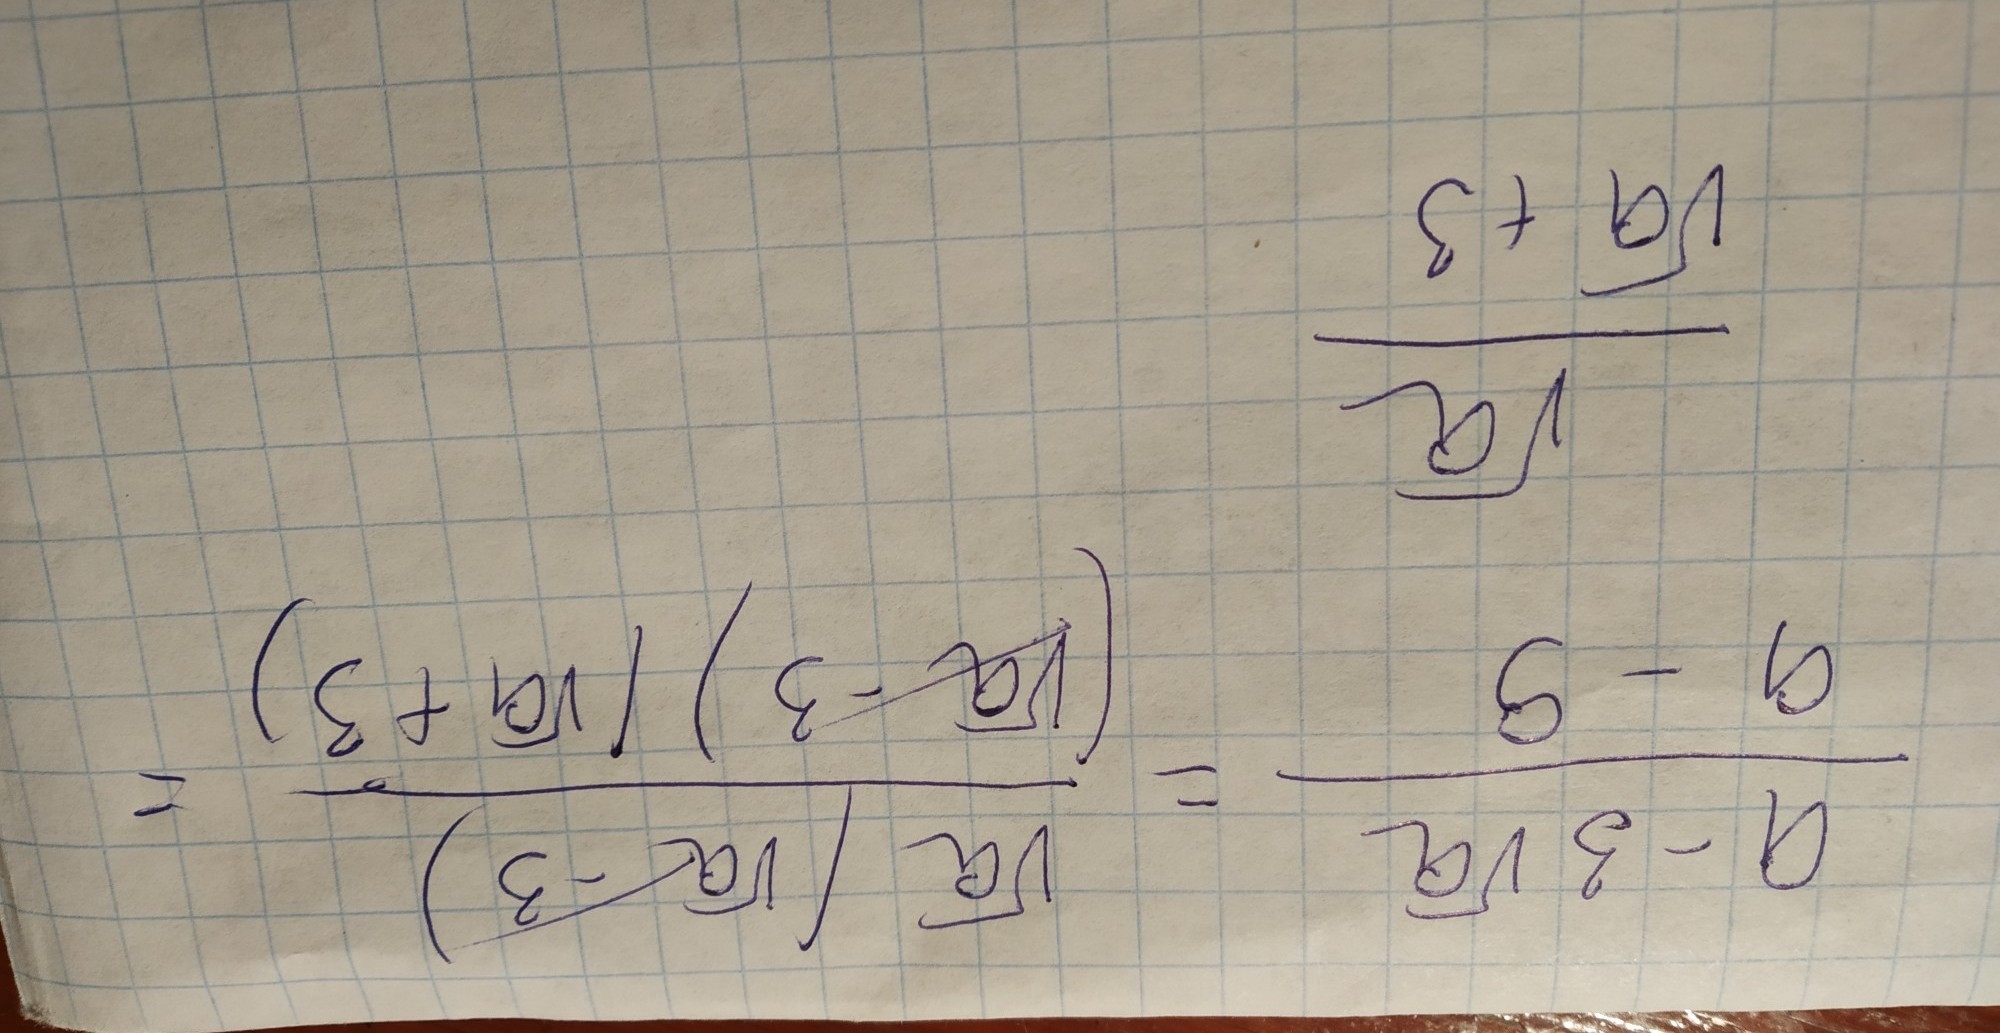 a - 3√a / a - 9 = √a (√a - 3) / (√a - 3) (√a + 3) =
√a / √a + 3